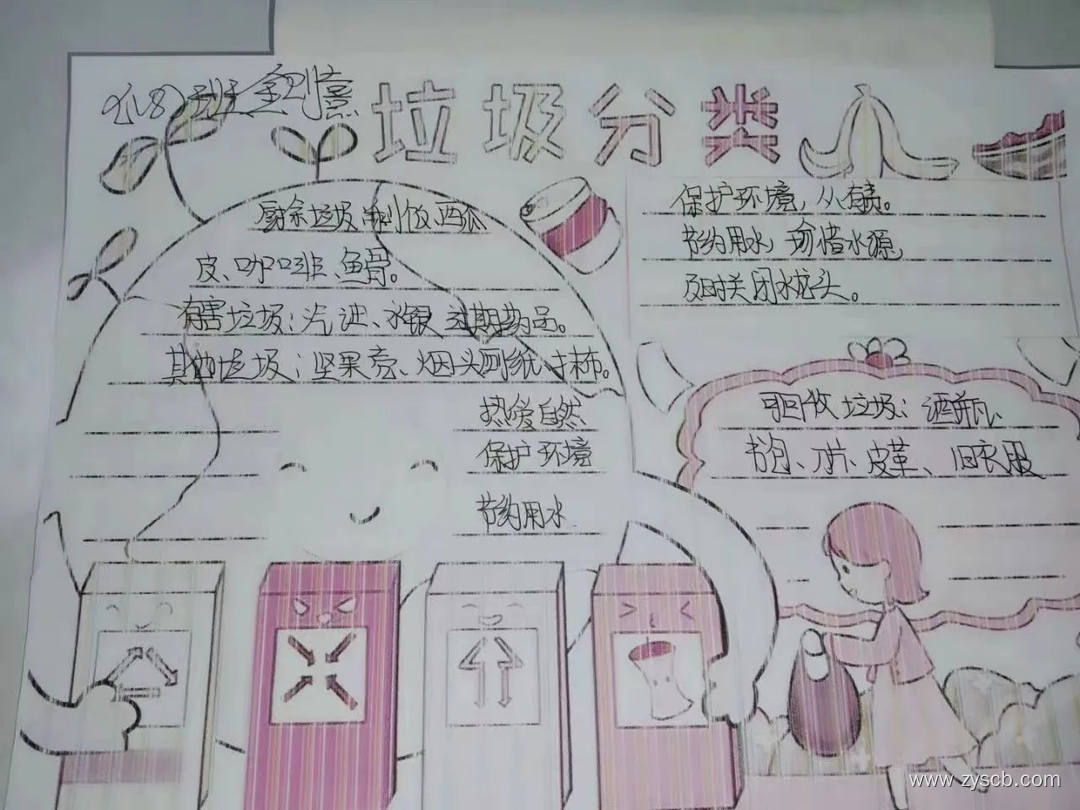 垃圾分类
厨余垃圾：剩饭、西瓜
皮、咖啡、鱼骨。
有害垃圾：汽油、水银、过期药品。
其他垃圾：坚果壳、烟头、面纸、抹布。
热爱自然
保护环境
节约用水
保护环境，人有责。
节约用水，珍惜水源，
及时关闭水龙头。
可回收垃圾：酒瓶、
书包、刀片、皮革、旧衣服
www.zyscb.com